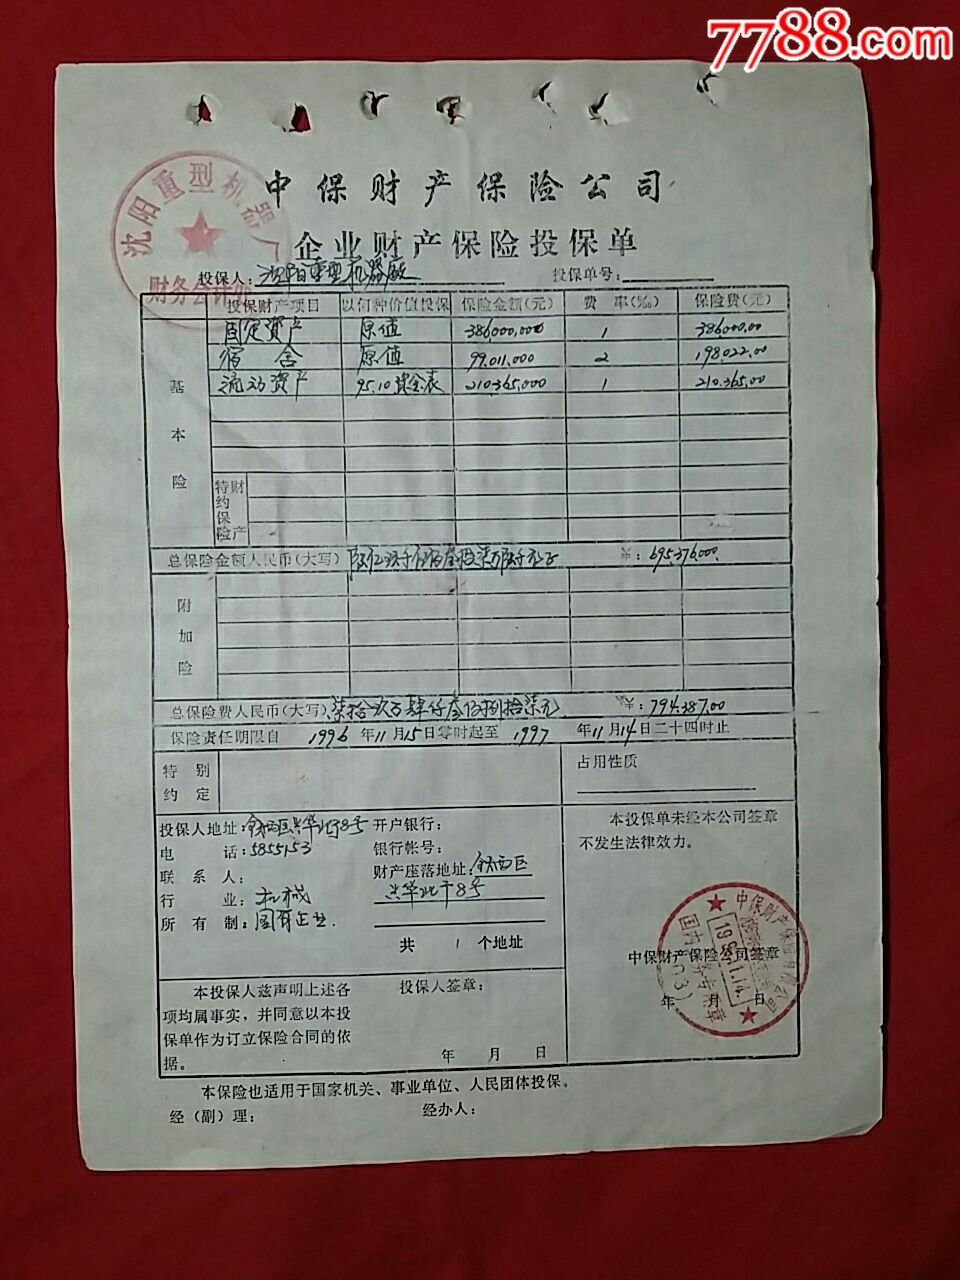 7788.com
中保财产保险公司
企业财产保险投保单
沈阳重型机器厂
财务会计
投保人：沈阳重型机器厂 投保单号：
投保财产项目 以何种价值投保 保险金额(元) 费 率(‰) 保险费(元)
基本险
固定资产 原值 386,000,000 1 386,000.00
宿舍 原值 99.011.000 2 198022.00
流动资产 95.10资金表 210.365,000 1 210.365.00
特约保险财产
总保险金额人民币(大写) ¥：695.376,000.
附加险
总保险费人民币(大写) 柒拾玖万肆仟叁佰捌拾柒元 ¥：794.387.00
保险责任期限自 1996 年11月15日零时起至 1997 年11月14日二十四时止
特别约定
占用性质
投保人地址：铁西区兴华北街8号
电 话：5855153
联 系 人：
行 业：机械
所 有 制：国有企业.
开户银行：
银行帐号：
财产座落地址：铁西区
兴华北街8号
共 1 个地址
本投保单未经本公司签章
不发生法律效力。
中保财产保险公司签章
年 月 日
本投保人兹声明上述各
项均属事实，并同意以本投
保单作为订立保险合同的依
据。
投保人签章：
年 月 日
本保险也适用于国家机关、事业单位、人民团体投保。
经（副）理： 经办人：